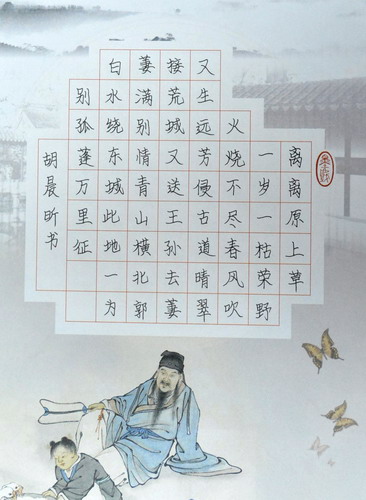 离离原上草
一岁一枯荣野
火烧不尽春风吹
又生远芳侵古道晴翠
接荒城又送王孙去萋
萋满别情青山横北郭
白水绕东城此地一为
别孤蓬万里征
胡晨昕书